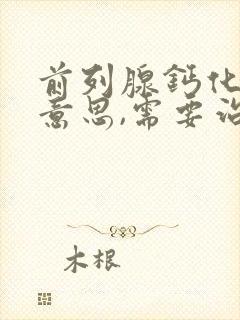 前列腺钙化
意思,需要治
木根